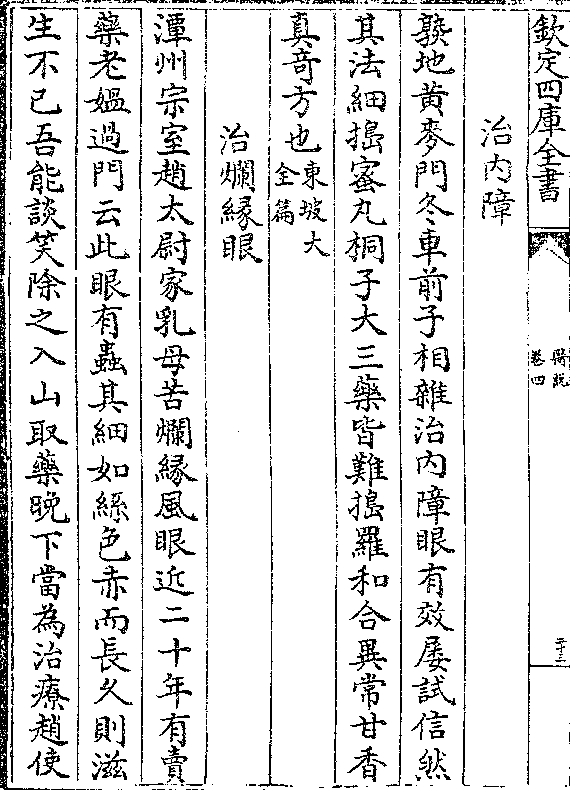 欽定四庫全書
醫說
卷四
二十三
治内障
熟地黄麥門冬車前子相雜治内障眼有效屢試信然
其法細搗蜜丸桐子大三藥皆難搗羅和合異常甘香
真奇方也東坡大
全篇
治爛縁眼
潭州宗室趙太尉家乳母苦爛縁風眼近二十年有賣
藥老媼過門云此眼有蟲其細如絲色赤而長久則滋
生不已吾能談笑除之入山取藥晚下當為治療趙使